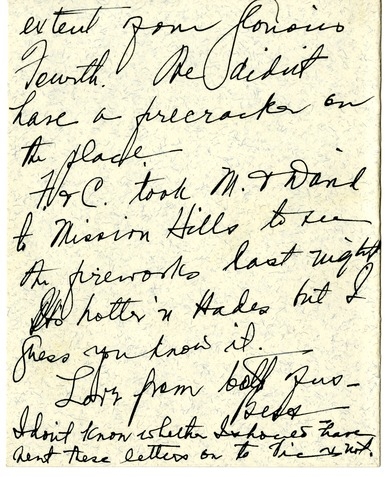 extent your glorious
Fourth. We didn't
have a firecracker on
the place.
F. & C. took M. & David
to Mission Hills to see
the fireworks last night
It's hotter'n Hades but I
guess you know it.
Love from both of us –
Bess
I don't know whether I should have
sent these letters on to Vic or not.